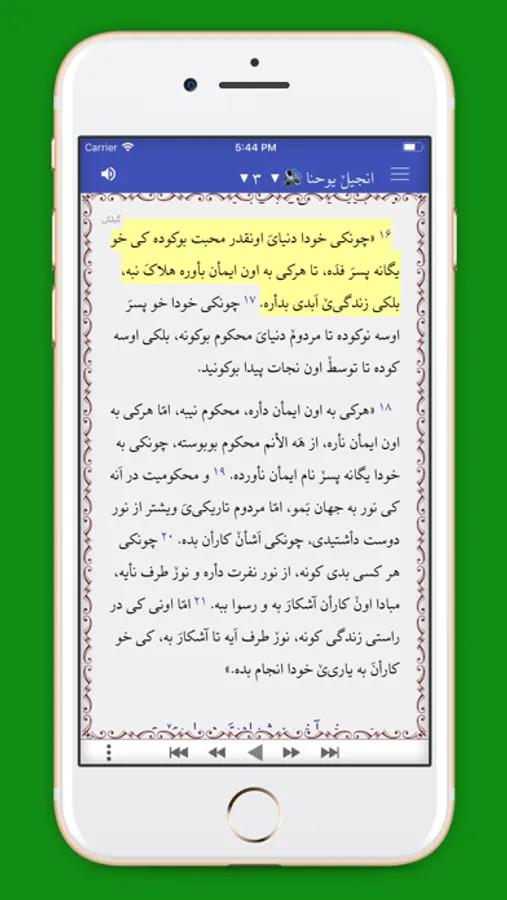 Carrier
5:44 PM
انجیلٚ یوحنا ▼ ۳ ▼
گیلکی
۱۶ «چونکی خودا دنیایَ اونقدر محبت بوکوده کی خو
یگانه پسرَ فدَه، تا هرکی به اون ایمأن بأوره هلاکَ نبه،
بلکی زندگی‌یٚ اَبدی بدأره. ۱۷ چونکی خودا خو پسرَ
اوسه نوکوده تا مردومٚ دنیایَ محکوم بوکونه، بلکی اوسه
کوده تا توسطٚ اون نجات پیدا بوکونید.
۱۸ «هرکی به اون ایمأن دأره، محکوم نیبه، امّا هرکی به
اون ایمأن نأره، از هَه الأنم محکوم بوبوسته، چونکی به
خودا یگانه پسرٚ نام ایمأن نأورده. ۱۹ و محکومیت در اَنه
کی نور به جهان بَمو، امّا مردوم تاریکی‌یَ ویشتر از نور
دوست دأشتیدی، چونکی اَشأنٚ کارأن بده. ۲۰ چونکی
هر کسی بدی کونه، از نور نفرت دأره و نورٚ طرف نأیه،
مبادا اونٚ کارأن آشکارَ به و رسوا ببه. ۲۱ امّا اونی کی در
راستی زندگی کونه، نورٚ طرف اَیه تا آشکارَ به، کی خو
کارأنَ به یاری‌یٚ خودا انجام بده.»